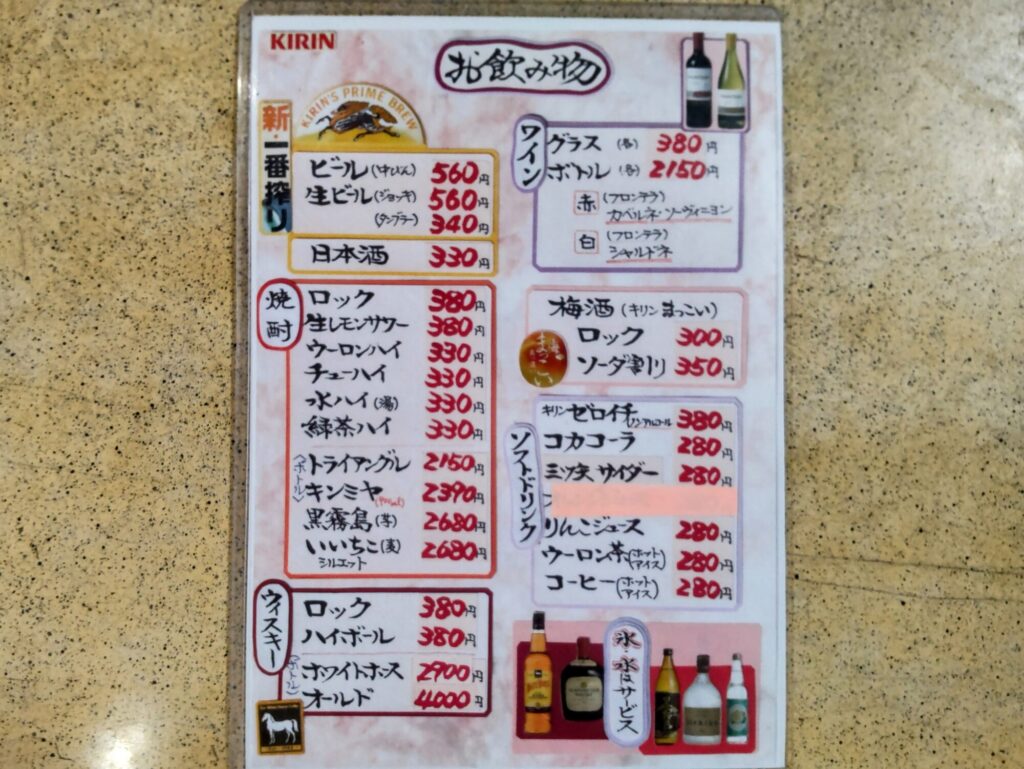 KIRIN
お飲み物
KIRIN'S PRIME BREW
新・一番搾り
ビール(中びん) 560円
生ビール(ジョッキ) 560円
(タンブラー) 340円
日本酒 330円
焼酎
ロック 380円
生レモンサワー 380円
ウーロンハイ 330円
チューハイ 330円
水ハイ(湯) 330円
緑茶ハイ 330円
(ボトル)
トライアングル 2150円
キンミヤ 2390円
黒霧島(芋) 2680円
いいちこ(麦) 2680円
シルエット
ウィスキー
ロック 380円
ハイボール 380円
(ボトル)
ホワイトホース 2900円
オールド 4000円
ワイン
グラス(各) 380円
ボトル(各) 2150円
赤 (フロンテラ)
カベルネ・ソーヴィニヨン
白 (フロンテラ)
シャルドネ
梅酒(キリンまっこい)
まっこい
ロック 300円
ソーダ割り 350円
ソフトドリンク
キリンゼロイチ ノンアルコール 380円
コカコーラ 280円
三ツ矢サイダー 280円
りんごジュース 280円
ウーロン茶(ホット アイス) 280円
コーヒー(ホット アイス) 280円
氷・水はサービス